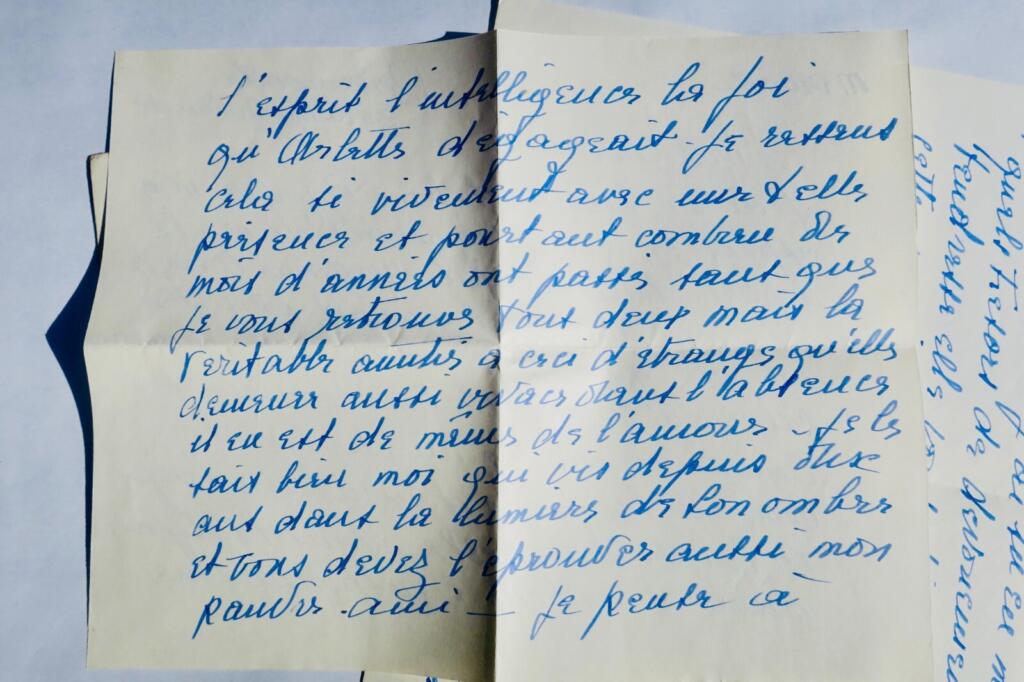 l'esprit l'intelligence la foi
qu'Arlette dégageait. Je ressens
cela si vivement avec une telle
présence et pourtant combien de
mois d'années ont passés sans que
je vous retrouve tous deux mais la
véritable amitié a ceci d'étrange qu'elle
demeure aussi vivace dans l'absence
il en est de même de l'amour. Je le
sais bien moi qui vis depuis dix
ans dans la lumière de son ombre
et vous devez l'éprouver aussi mon
pauvre ami — Je pense à
quels trésors de
tendresse elle
cette